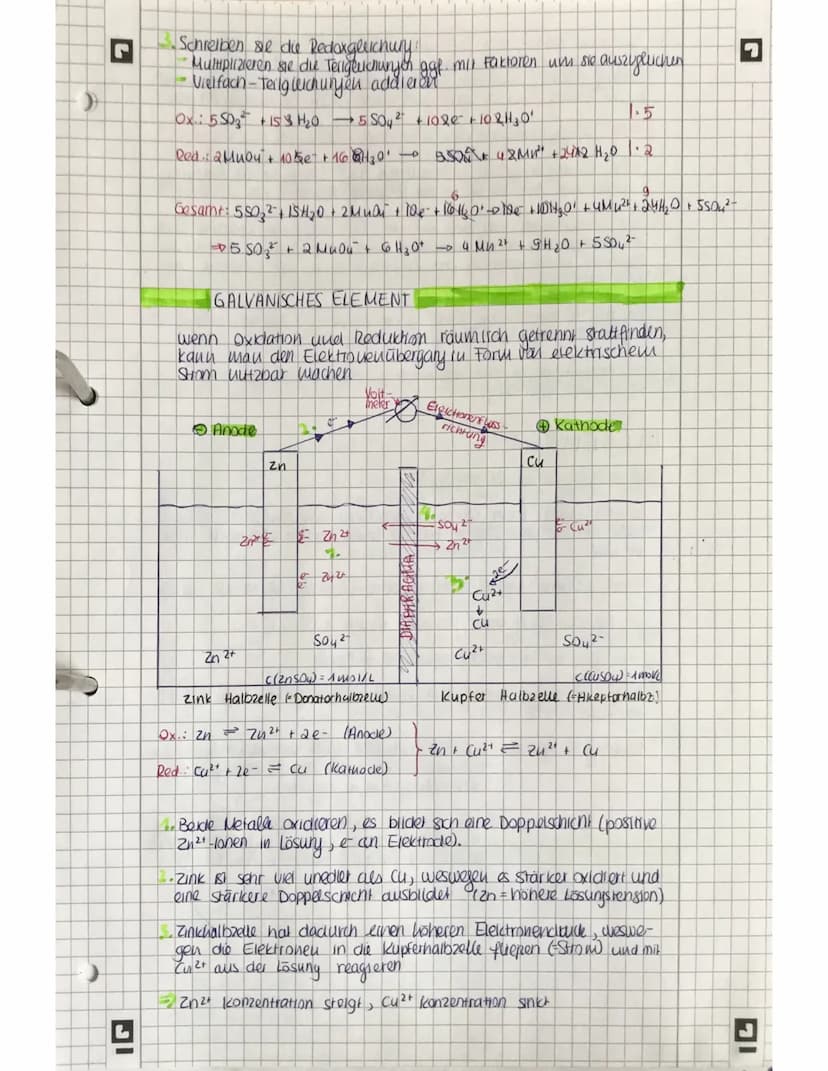 3. Schreiben sie die Redoxgleichung:
- Multiplizieren sie die Teilgleichungen ggf. mit Faktoren um sie auszugleichen
- Vielfach-Teilgleichungen addieren
Ox.: 5SO₃²⁻ + 15 H₂O → 5 SO₄²⁻ + 10 e⁻ + 10 H₃O⁺ |·5
Red.: 2MnO₄⁻ + 10 e⁻ + 16 H₃O⁺ → Mn²⁺ + 24 H₂O |·2
Gesamt: 5SO₃²⁻ + 15H₂O + 2MnO₄⁻ + 10e⁻ + 16 H₃O⁺ → 10e⁻ + 10H₃O⁺ + 4Mn²⁺ + 24H₂O + 5SO₄²⁻
6 9
⇒ 5 SO₃²⁻ + 2 MnO₄⁻ + 6 H₃O⁺ → 4 Mn²⁺ + 9H₂O + 5SO₄²⁻
GALVANISCHES ELEMENT
wenn Oxidation und Reduktion räumlich getrennt stattfinden,
kann man den Elektronenübergang in Form von elektrischem
Strom nutzbar machen
Volt-
meter
Elektronenfluss-
richtung
⊖ Anode
2. e⁻
⊕ Kathode
Zn
Cu
Zn²⁺
Zn²⁺
1.
Zn²⁺
DIAPHRAGMA
4.
SO₄²⁻
Zn²⁺
Cu²⁺
3.
2e⁻
Cu²⁺
↓
Cu
Zn²⁺
SO₄²⁻
Cu²⁺
SO₄²⁻
c(ZnSO₄) = 1mol/L
c(CuSO₄) = 1mol/L
Zink Halbzelle (=Donatorhalbzelle)
Kupfer Halbzelle (=Akeptorhalbz.)
Ox.: Zn ⇌ Zn²⁺ + 2e⁻ (Anode)
Zn + Cu²⁺ ⇌ Zn²⁺ + Cu
Red.: Cu²⁺ + 2e⁻ ⇌ Cu (Kathode)
1. Beide Metalle oxidieren, es bildet sich eine Doppelschicht (positive
Zn²⁺-Ionen in Lösung, e⁻ an Elektrode).
2. Zink ist sehr viel unedler als Cu, weswegen es stärker oxidiert und
eine stärkere Doppelschicht ausbildet (Zn = höhere Lösungstension)
3. Zinkhalbzelle hat dadurch einen höheren Elektronendruck, weswe-
gen die Elektronen in die Kupferhalbzelle fließen (=Strom) und mit
Cu²⁺ aus der Lösung reagieren
⇒ Zn²⁺ Konzentration steigt, Cu²⁺ Konzentration sinkt